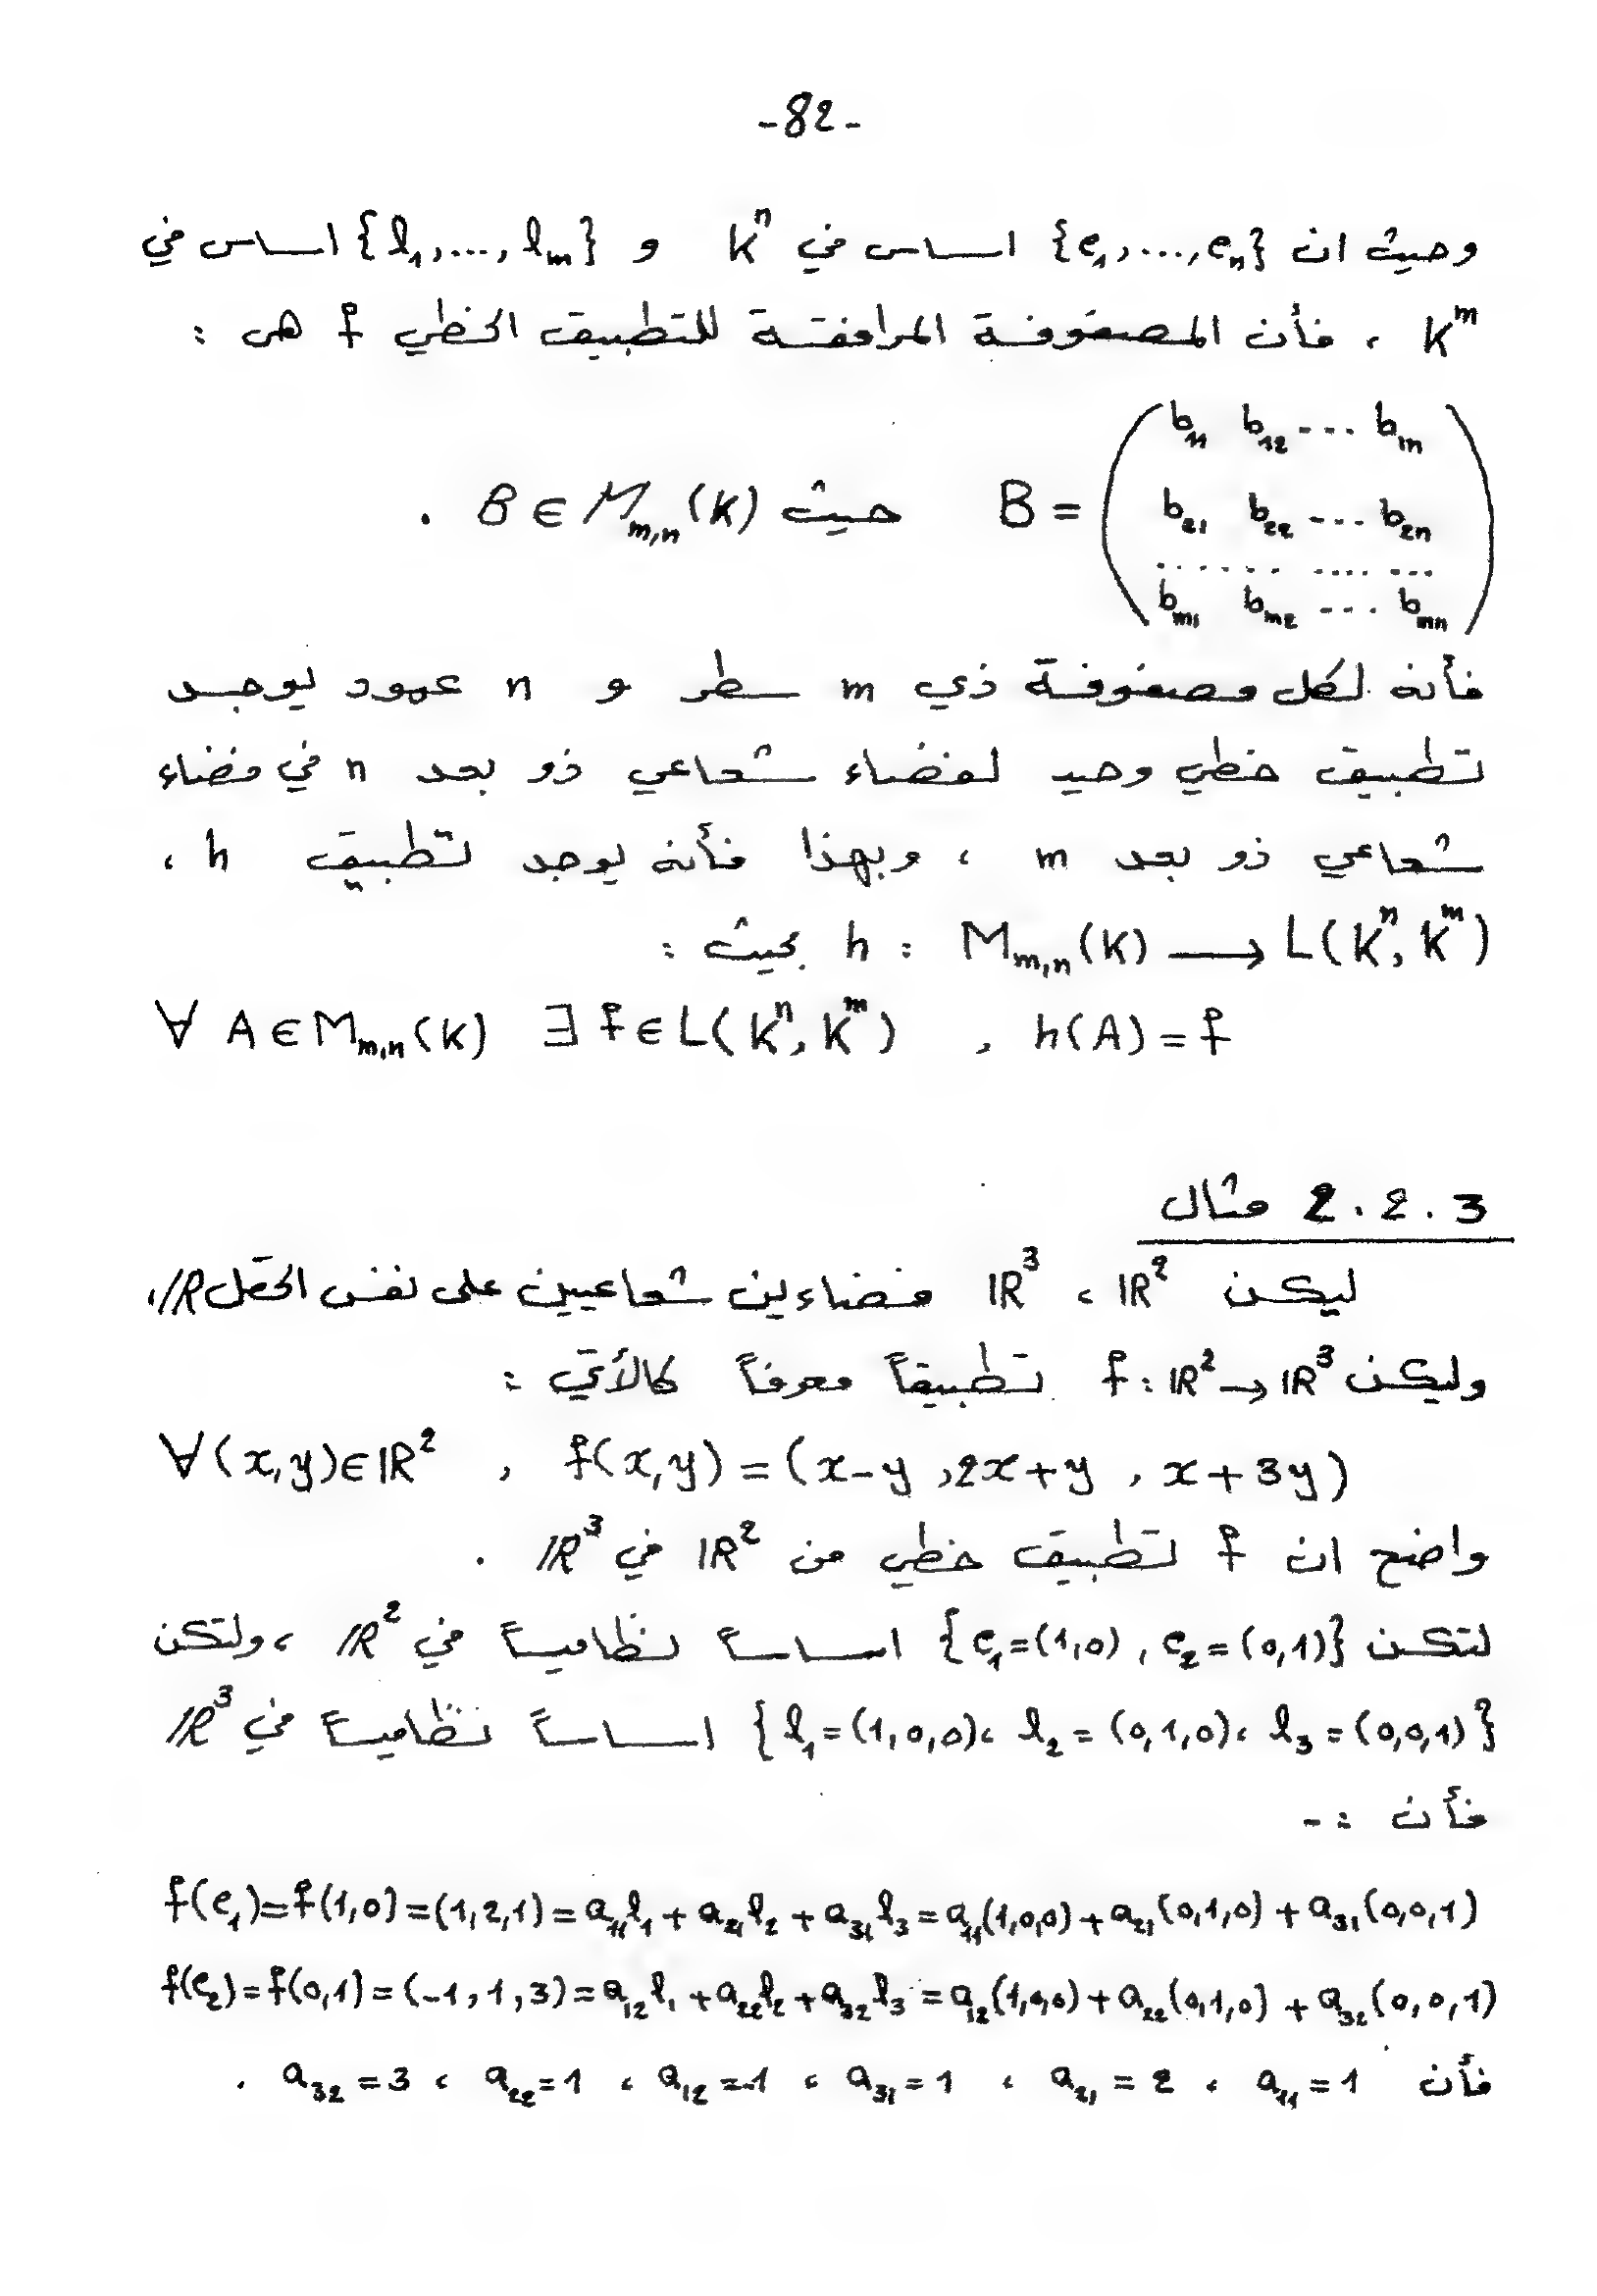 -82-
وحيث ان {e₁,...,eₙ} اساس في Kⁿ و {l₁,...,lₘ} اساس في
Kᵐ ، فأن المصفوفة المرافقة للتطبيق الخطي f هى :
b₁₁ b₁₂ --- b₁ₙ
B = ( b₂₁ b₂₂ --- b₂ₙ ) حيث B ∈ Mₘ,ₙ(K) .
...... .... ...
bₘ₁ bₘ₂ --- bₘₙ
فأنه لكل مصفوفة ذي m سطر و n عمود يوجد
تطبيق خطي وحيد لفضاء شعاعي ذو بعد n في فضاء
شعاعي ذو بعد m ، وبهذا فأنه يوجد تطبيق h ،
h : Mₘ,ₙ(K) ⟶ L(Kⁿ, Kᵐ) بحيث :
∀ A ∈ Mₘ,ₙ(K) ∃ f ∈ L(Kⁿ, Kᵐ) , h(A) = f
2.2.3 مثال
ليكن IR² ، IR³ فضاءين شعاعيين على نفس الحقل IR،
وليكن f : IR² → IR³ تطبيقاً معرفاً كالأتي :
∀(x,y)∈IR² , f(x,y) = (x-y , 2x+y , x+3y)
واضح ان f تطبيق خطي من IR² في IR³ .
لتكن {e₁=(1,0) , e₂=(0,1)} اساساً نظامياً في IR² ، ولتكن
{l₁=(1,0,0)، l₂=(0,1,0)، l₃=(0,0,1)} اساساً نظامياً في IR³
فأن :-
f(e₁)=f(1,0)=(1,2,1)=a₁₁l₁+a₂₁l₂+a₃₁l₃=a₁₁(1,0,0)+a₂₁(0,1,0)+a₃₁(0,0,1)
f(e₂)=f(0,1)=(-1,1,3)=a₁₂l₁+a₂₂l₂+a₃₂l₃=a₁₂(1,0,0)+a₂₂(0,1,0)+a₃₂(0,0,1)
فأن a₁₁=1 ، a₂₁=2 ، a₃₁=1 ، a₁₂=-1 ، a₂₂=1 ، a₃₂=3 .